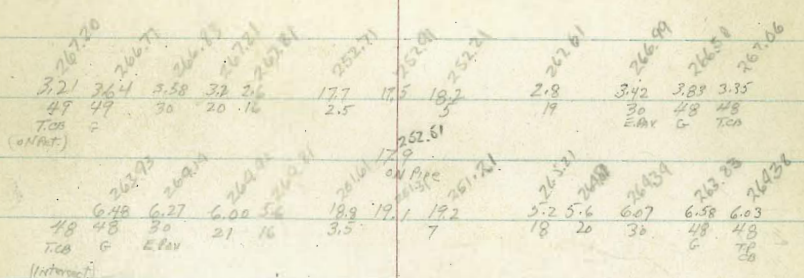 267.20 266.77 266.83 267.21 267.81 252.71 252.91 252.21 267.61 266.99 266.58 267.06
3.21 3.64 3.58 3.2 2.6 17.7 17.5 18.2 2.8 3.42 3.83 3.35
49 49 30 20 16 2.5 5 19 30 48 48
T.CB G E.PAV G T.CB
(ON Pvt.) 252.51
17.9
ON Pipe
263.93 264.14 264.81 251.61 251.31 251.21 265.21 264.81 264.34 263.83 264.38
6.48 6.27 6.00 5.6 18.8 19.1 19.2 5.2 5.6 6.07 6.58 6.03
48 48 30 21 16 3.5 7 18 20 30 48 48
T.CB G E.PAV G T.P
CB
(Intersect)